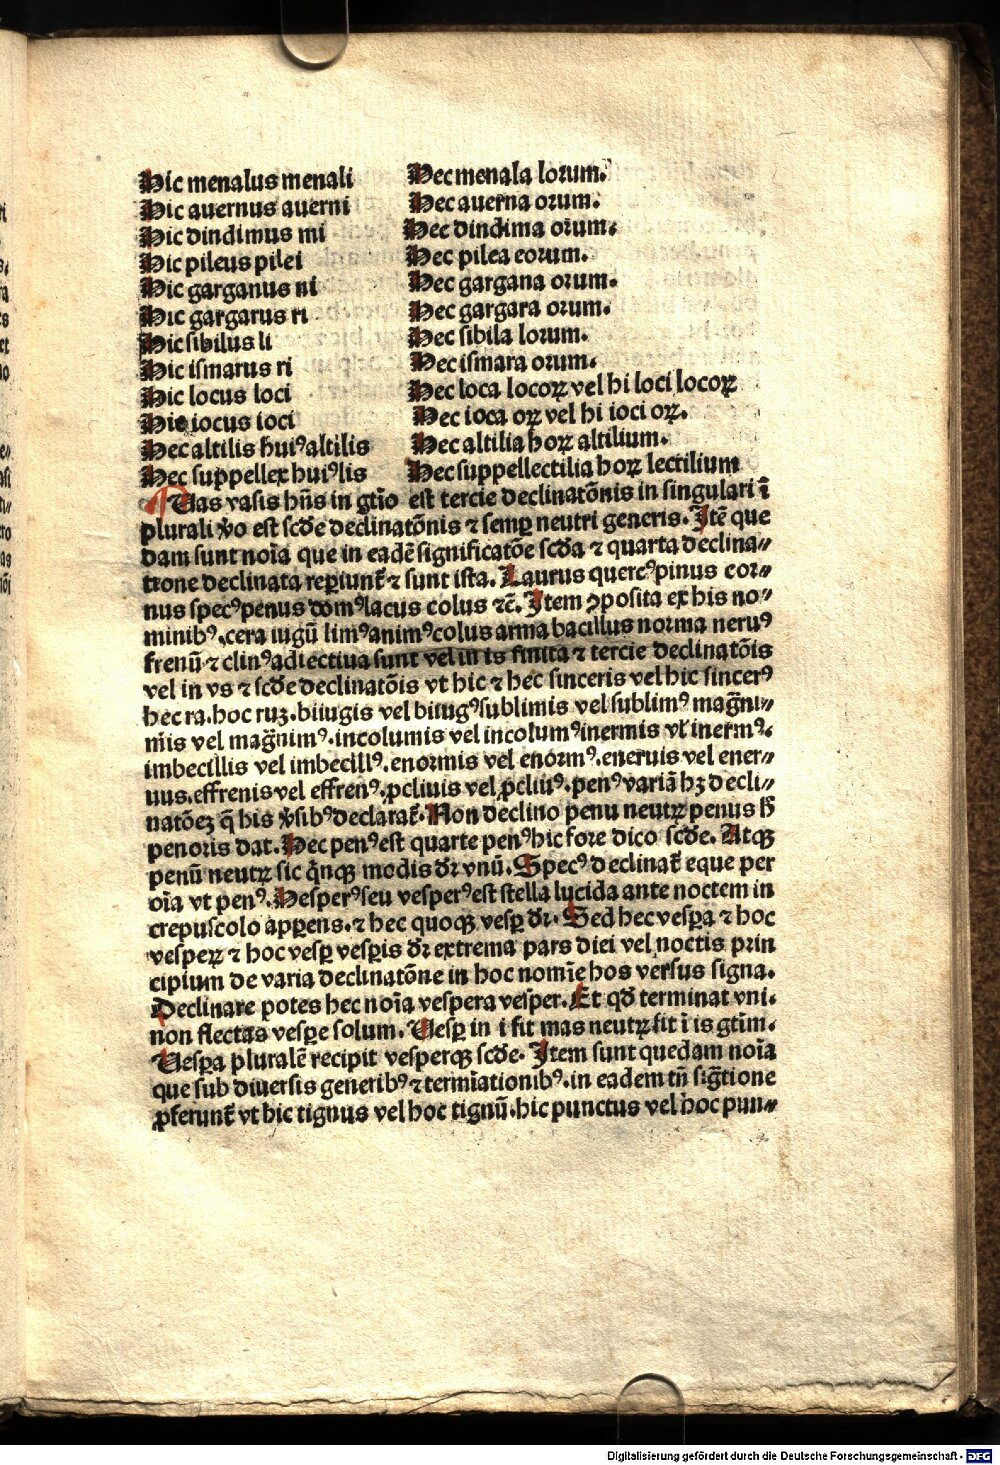 Hic menalus menali Hec menala lorum.
Hic auernus auerni Hec auerna orum.
Hic dindimus mi Hec dindima orum.
Hic pileus pilei Hec pilea eorum.
Hic garganus ni Hec gargana orum.
Hic gargarus ri Hec gargara orum.
Hic sibilus li Hec sibila lorum.
Hic ismarus ri Hec ismara orum.
Hic locus loci Hec loca locoꝝ vel hi loci locoꝝ
Hic iocus ioci Hec ioca oꝝ vel hi ioci oꝝ.
Hec altilis huiꝰ altilis Hec altilia hoꝝ altilium.
Hec suppellex huiꝰ lis Hec suppellectilia hoꝝ lectilium
Uas vasis hn̄s in gtīo est tercie declinatōnis in singulari ī
plurali ṽo est scďe declinatōnis ⁊ semꝑ neutri generis. Itē que
dam sunt noīa que in eadē significatōe scďa ⁊ quarta declina⸗
tione declinata reꝑiunt̃ ⁊ sunt ista. Laurus quercꝰ pinus cor⸗
nus specꝰ penus domꝰ lacus colus ⁊c̃. Item ꝯposita ex his no⸗
minibꝰ. cera iugū limꝰ animꝰ colus arma bacillus norma neruꝰ
frenū ⁊ clinꝰ adiectiua sunt vel in is finita ⁊ tercie declinatōis
vel in vs ⁊ scďe declinatōis vt hic ⁊ hec sinceris vel hic sincerꝰ
hec ra. hoc ruꝫ. biiugis vel biiugꝰ sublimis vel sublimꝰ mag̃ni⸗
mis vel mag̃nimꝰ. incolumis vel incolumꝰ inermis vl̓ inermꝰ.
imbecillis vel imbecillꝰ. enormis vel enormꝰ. eneruis vel ener⸗
uus. effrenis vel effrenꝰ. ꝓcliuis vel ꝓcliuꝰ. penꝰ variā hꝫ decli⸗
natōeꝫ q̄ his ṽsibꝰ declarat̃. Non declino penu neutꝝ penus ħ
penoris dat. Hec penꝰ est quarte penꝰ hic fore dico scďe. Atqꝫ
penū neutꝝ sic q̄nqꝫ modis dr̄ vnū. Specꝰ declinat̃ eque per
oīa vt penꝰ. Hesperꝰ seu vesperꝰ est stella lucida ante noctem in
crepusculo apꝑens. ⁊ hec quoqꝫ vesꝑ dr̄. Sed hec vesꝑa ⁊ hoc
vesperꝝ ⁊ hoc vesꝑ vesꝑis dr̄ extrema pars diei vel noctis prin
cipium de varia declinatōne in hoc nomīe hos versus signa.
Declinare potes hec noīa vespera vesper. Et qď terminat vni.
non flectas vesꝑe solum. Uesꝑ in i fit mas neutꝝ fit ī is gtīm.
Uesꝑa pluralē recipit vesperqꝫ scďe. Item sunt quedam noīa
que sub diuersis generibꝰ ⁊ termīationibꝰ. in eadem tn̄ sig̃tione
ꝓferunt̃ vt hic tignus vel hoc tignū. hic punctus vel hoc pun⸗
Digitalisierung gefördert durch die Deutsche Forschungsgemeinschaft - DFG